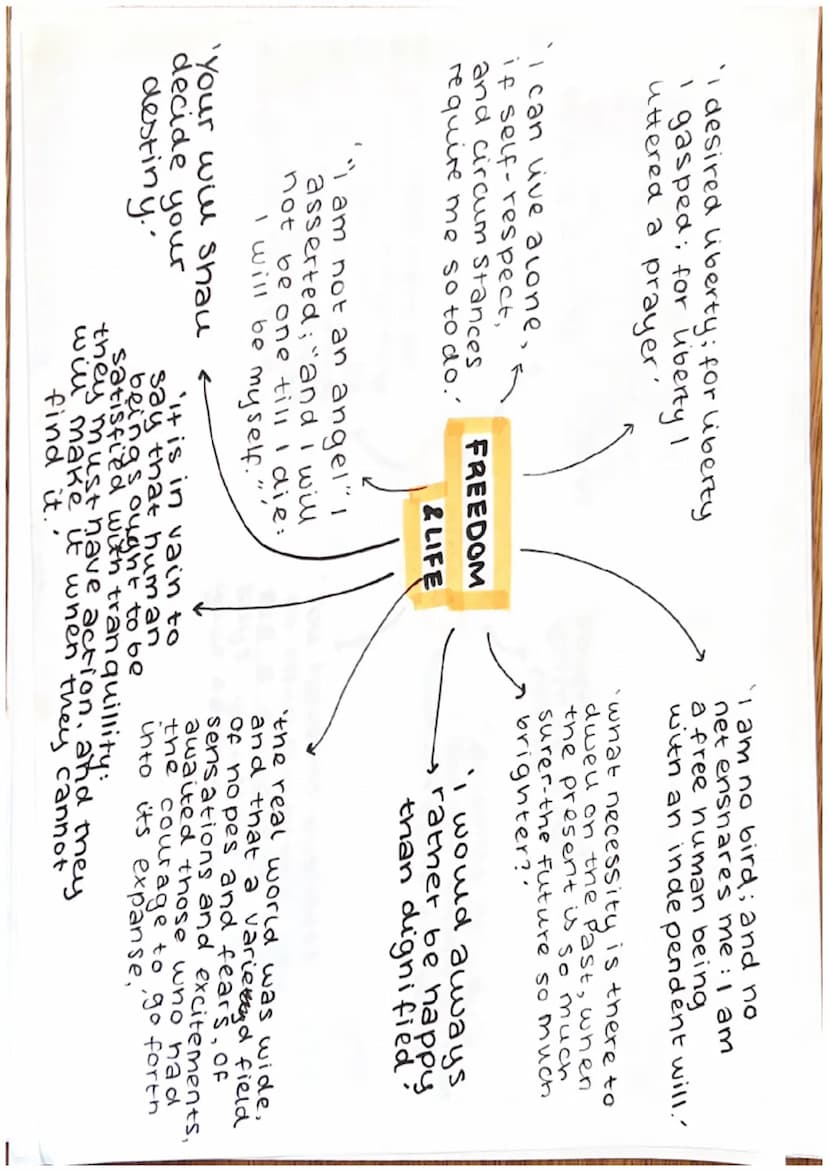 'i desired liberty; for liberty
I gasped; for liberty I
uttered a prayer.'
'I can live alone,
if self-respect,
and circumstances
require me so to do.'
'"I am not an angel" I
asserted; "and I will
not be one till I die:
I will be myself."'
'Your will shall
decide your
destiny.'
FREEDOM
& LIFE
'I am no bird; and no
net ensnares me: I am
a free human being
with an independent will.'
'what necessity is there to
dwell on the past, when
the present is so much
surer-the future so much
brighter?'
'I would always
rather be happy
than dignified.'
'the real world was wide,
and that a varied field
of hopes and fears, of
sensations and excitements,
awaited those who had
the courage to go forth
into its expanse,
'it is in vain to
say that human
beings ought to be
satisfied with tranquillity:
they must have action, and they
will make it when they cannot
find it.'